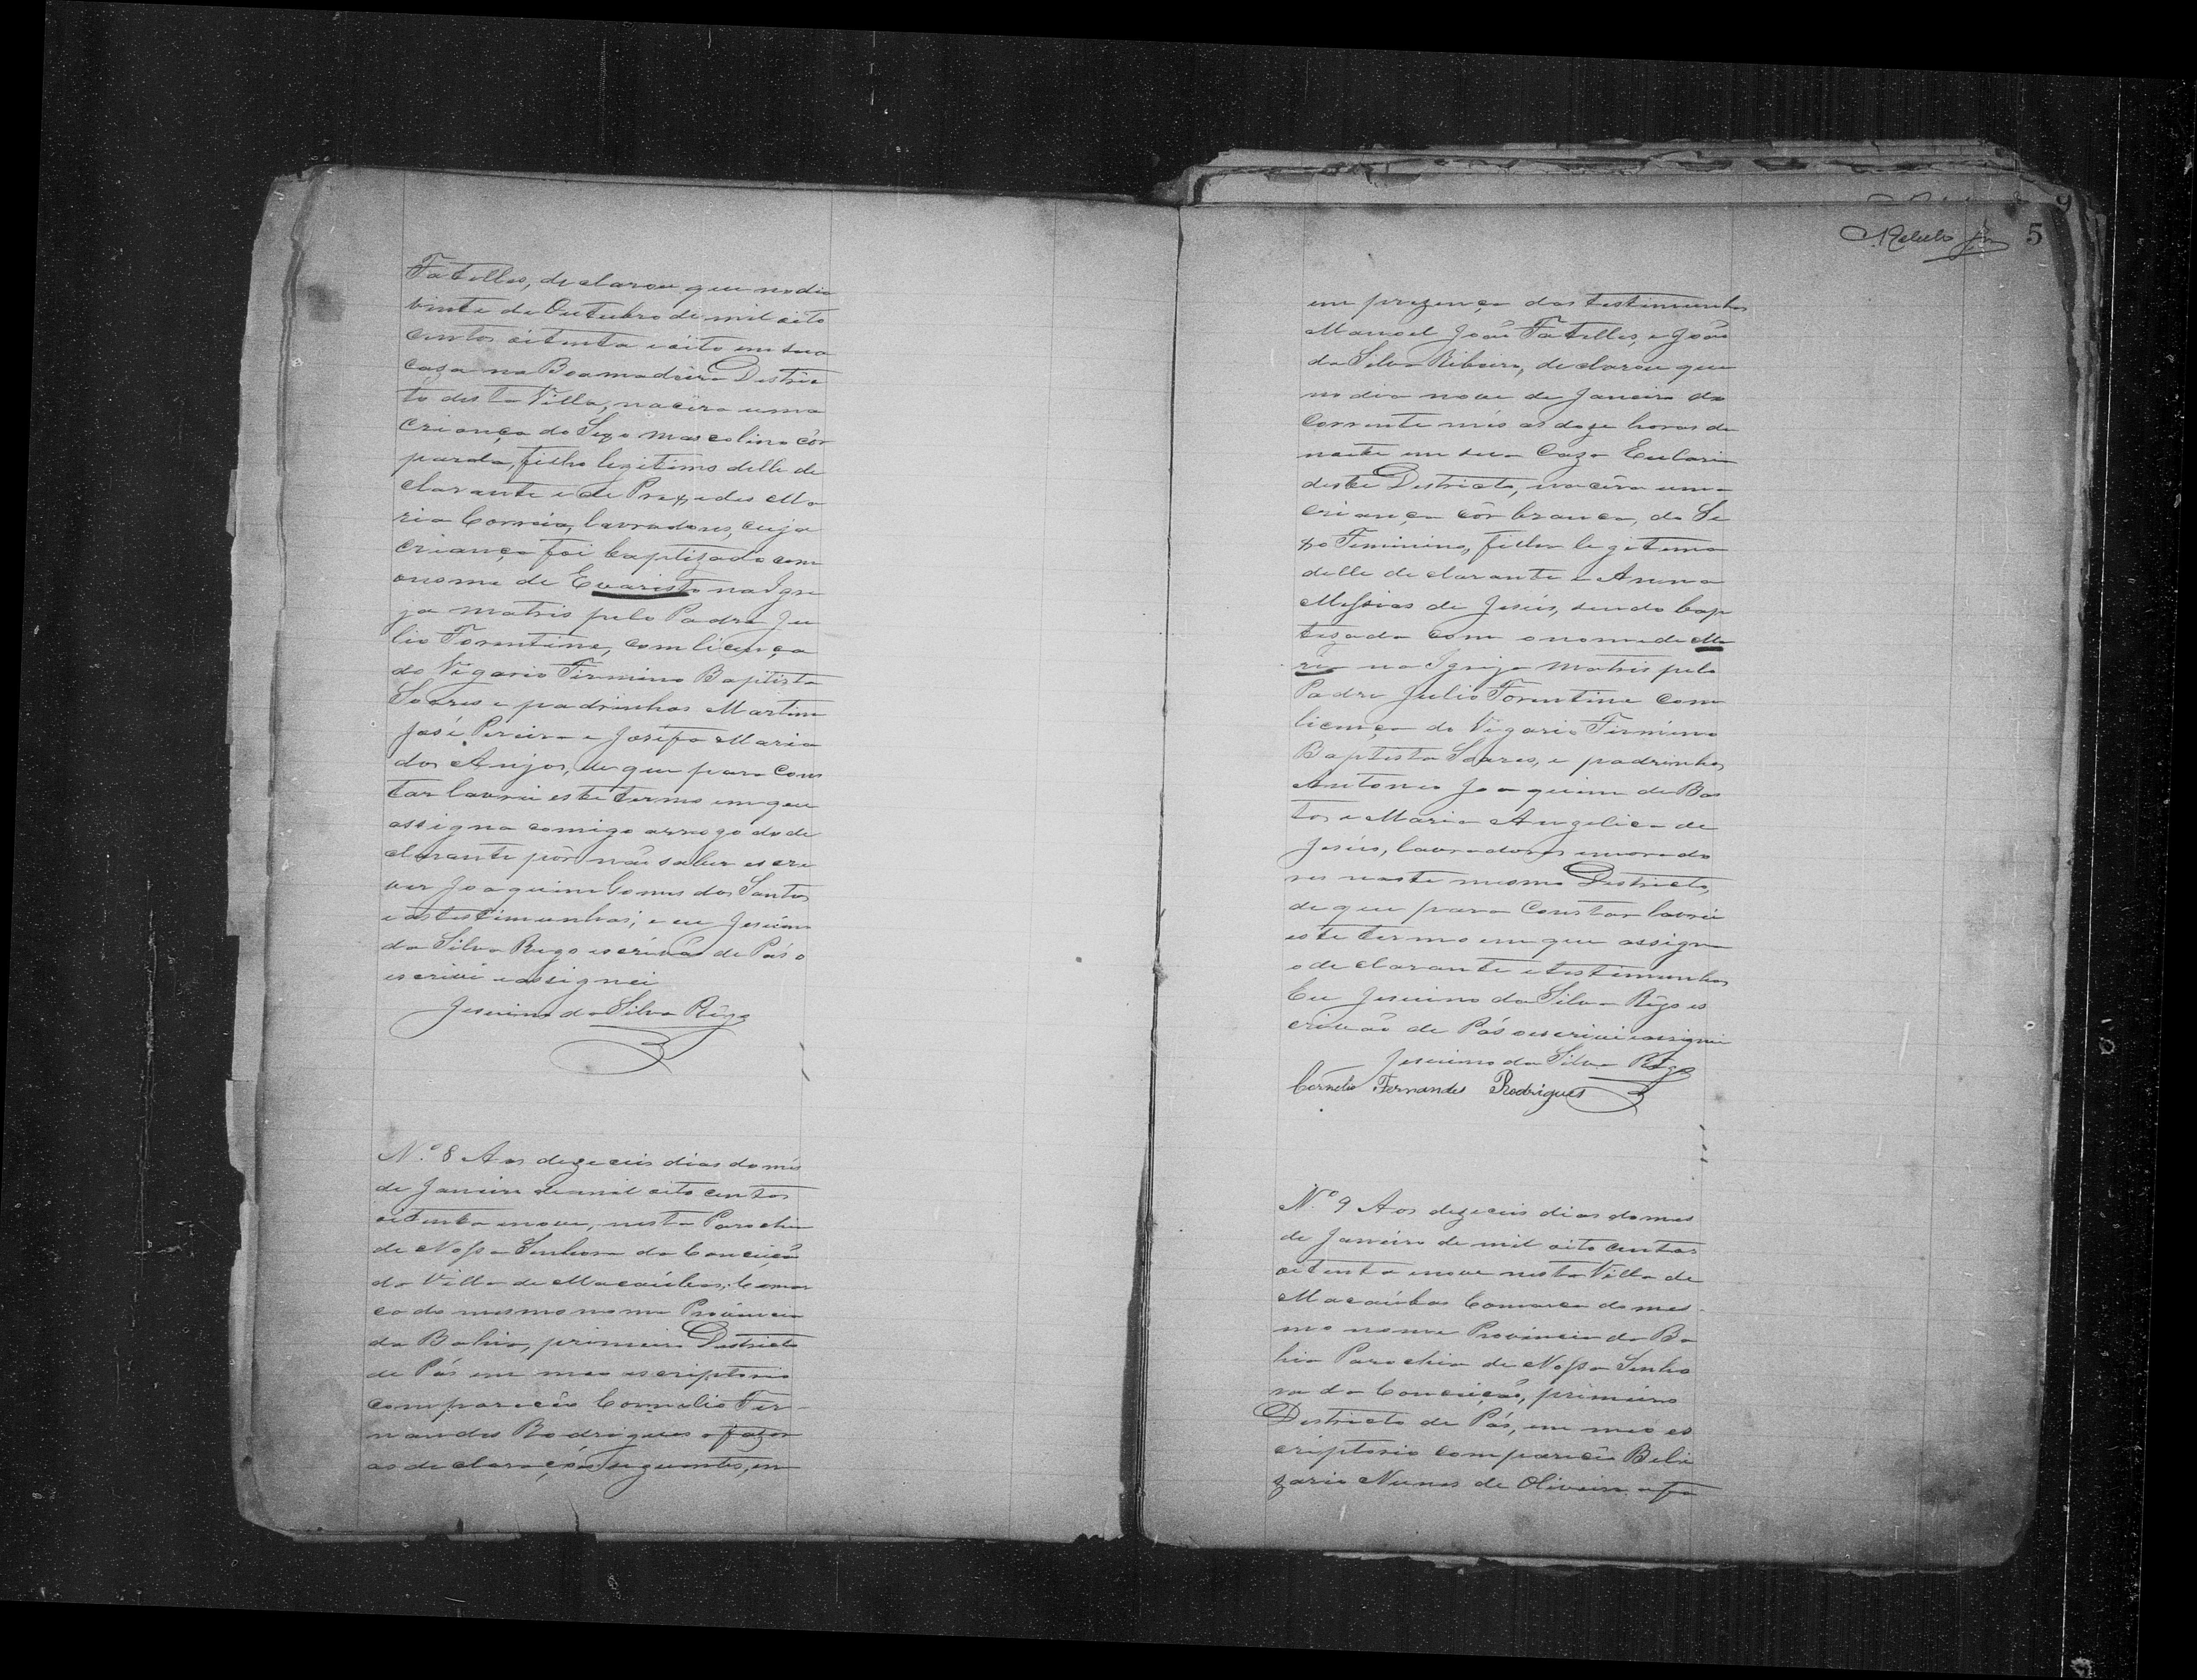 Fatelles, declarou que no dia
vinte de Outubro de mil oito
centos oitenta e oito em sua
caza na Boamadeira Distric
to desta Villa, nacêra uma
criança do Sexo mascolino côr
parda, filho legitimo delle de
clarante e de Praxedes Ma
ria Corrêia, lavradores, cuja
criança foi baptizada com
o nome de Evaristo na Igre
ja matris pelo Padre Ju
lio Forentine, com licença
do Vigario Firmino Baptista
Soares e padrinhos Martim
José Pereira e Josefa Maria
dos Anjos, de que para cons
tar lavrei este termo em que
assigna comigo arrogo do de
clarante por não saber escre
ver Joaquim Gomes dos Santos
e as testimunhas; e eu Jesuino
da Silva Rego escrivão de Pás o
escrivi e assignei
Jesuino da Silva Rêgo
N.º 8 Aos dezeceis dias do mês
de Janeiro de mil oito centos
oitenta e nove, nesta Parochia
de Nossa Senhora da Conceição
da Villa de Macaúbas, Comar
ca do mesmo nome Provincia
da Bahia, primeiro Destricto
de Pás em meo escriptorio
compareceo Cornelio Fer-
nandes Rodrigues a fazer
as declarações seguentes, em
Rebelo Jor 5
em prezença das testimunhas
Manoel João Fatelles, e João
da Silva Ribeiro, declarou que
no dia nove de Janeiro do
corrente mês as doze horas da
noite em sua Caza Eularia
deste Destricto, nacêra uma
criança côr branca, do Se
xo Feminino, filha legitima
delle declarante e Anna
Messias de Jesús, sendo bap
tizada com o nome de Ma
ria na Igreja matris pelo
Padre Julio Forentine com
licença do Vigario Firmino
Baptista Soares, e padrinhos
Antonio Joaquim de Bas
tos e Maria Angelica de
Jesús, lavradores e morado
res neste mesmo Destricto,
de que para Constar lavrei
este termo em que assigna
o declarante e testimunhas
Eu Jesuino da Silva Rêgo es
crivão de Pás o escrivi e assignei
Jesuino da Silva Rêgo
Cornelio Fernandes Rodrigues
N.º 9 Aos dezeceis dias do mes
de Janeiro de mil oito centos
oitenta e nove nesta Villa de
Macaúbas Comarca do mes-
mo nome Provincia da Ba
hia Parochia de Nossa Senho
ra da Conceição, primeiro
Destricto de Pás, em meo es
criptorio compareceo Beli
zario Nunes de Oliveira a fa